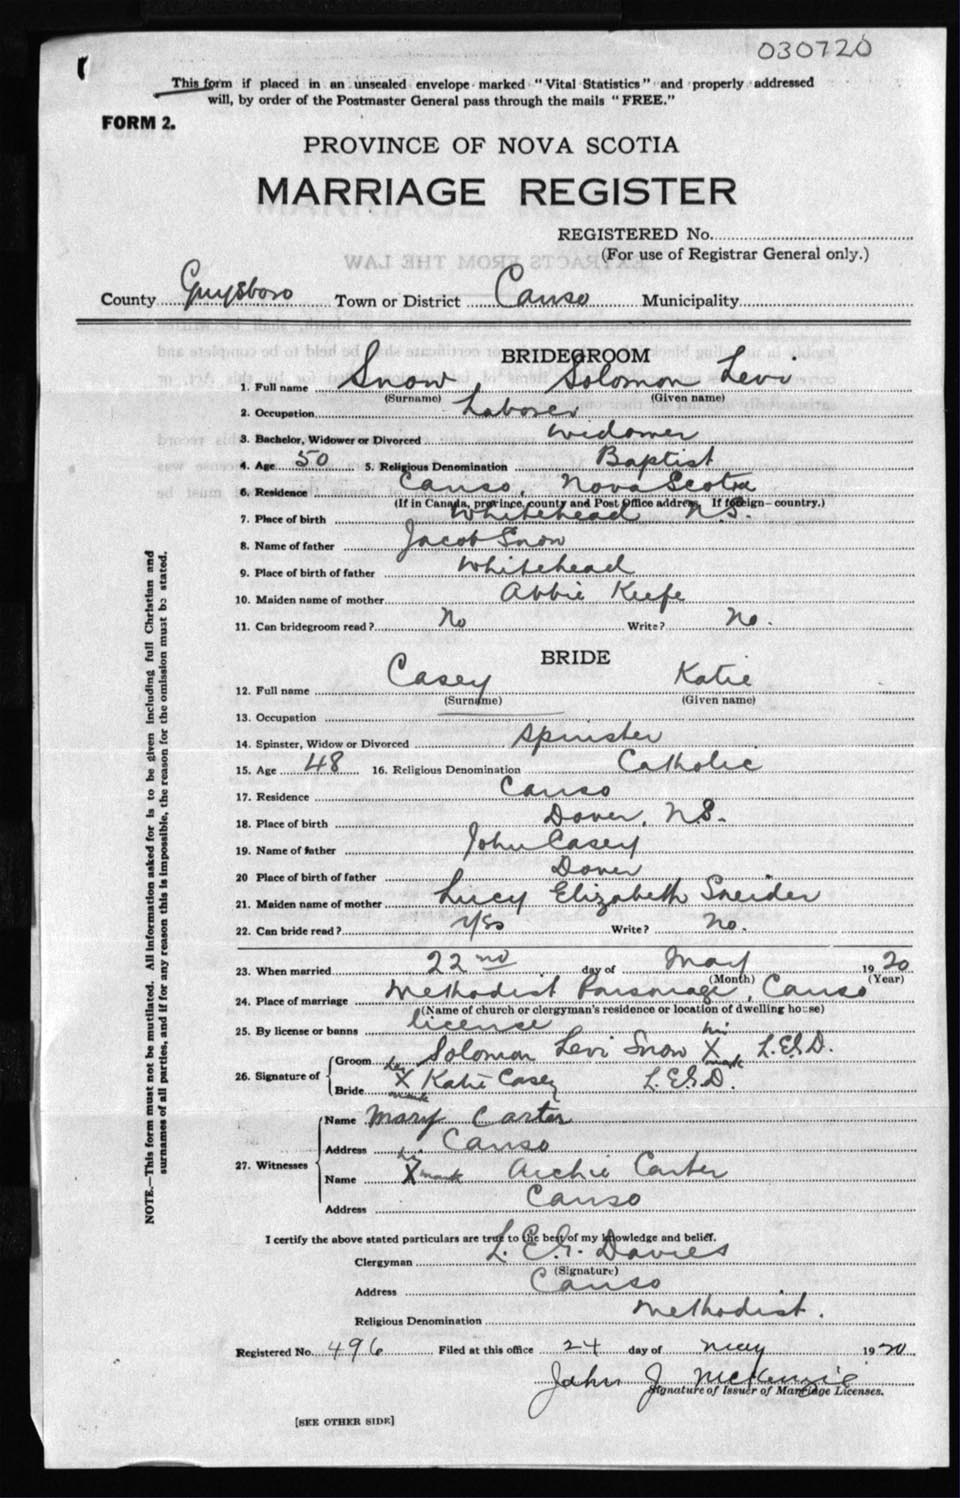 030720
This form if placed in an unsealed envelope marked "Vital Statistics" and properly addressed
will, by order of the Postmaster General pass through the mails "FREE."
FORM 2.
PROVINCE OF NOVA SCOTIA
MARRIAGE REGISTER
REGISTERED No.
(For use of Registrar General only.)
County Guysboro Town or District Canso Municipality
BRIDEGROOM
1. Full name Snow, Solomon Levi
(Surname) (Given name)
2. Occupation Laborer
3. Bachelor, Widower or Divorced Widower
4. Age 50 5. Religious Denomination Baptist
6. Residence Canso, Nova Scotia
(If in Canada, province, county and Post Office address. If foreign—country.)
7. Place of birth Whitehead N.S.
8. Name of father Jacob Snow
9. Place of birth of father Whitehead
10. Maiden name of mother Abbie Keefe
11. Can bridegroom read? No Write? No.
BRIDE
12. Full name Casey Katie
(Surname) (Given name)
13. Occupation
14. Spinster, Widow or Divorced Spinster
15. Age 48 16. Religious Denomination Catholic
17. Residence Canso
18. Place of birth Dover, N.S.
19. Name of father John Casey
20 Place of birth of father Dover
21. Maiden name of mother Lucy Elizabeth Sneider
22. Can bride read? Yes Write? No.
23. When married 22nd day of May 1920
(Month) (Year)
24. Place of marriage Methodist Parsonage, Canso
(Name of church or clergyman's residence or location of dwelling house)
25. By license or banns license
26. Signature of Groom Solomon Levi Snow his X mark L.E.G.D.
Bride her X mark Katie Casey L.E.G.D.
27. Witnesses Name Mary Carter
Address Canso
Name his X mark Archie Carter
Address Canso
I certify the above stated particulars are true to the best of my knowledge and belief.
Clergyman L. E. G. Davies
(Signature)
Address Canso
Religious Denomination Methodist.
Registered No. 496 Filed at this office 24 day of May 1920
John J McKenzie
Signature of Issuer of Marriage Licenses.
[SEE OTHER SIDE]
NOTE.—This form must not be mutilated. All information asked for is to be given including full Christian and
surnames of all parties, and if for any reason this is impossible, the reason for the omission must be stated.